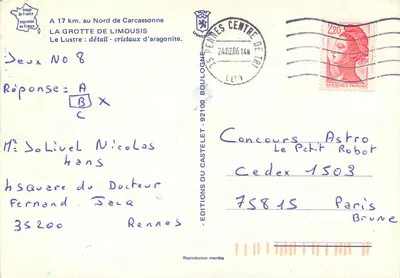 image de France
A 17 km. au Nord de Carcassonne
LA GROTTE DE LIMOUSIS
Le Lustre : détail - cristaux d'aragonite.
Jeux No 8
Réponse = A
B X
C
Mr Jolivel Nicolas
4 ans
4 Square du Docteur
Fernand Jacq
35200 Rennes
- EDITIONS DU CASTELET - 92100 BOULOGNE
35 RENNES CENTRE DE TRI
24.02.86
2,20
Concours Astro
Le Petit Robot
Cedex 1503
75815 Paris
Brune
Reproduction interdite